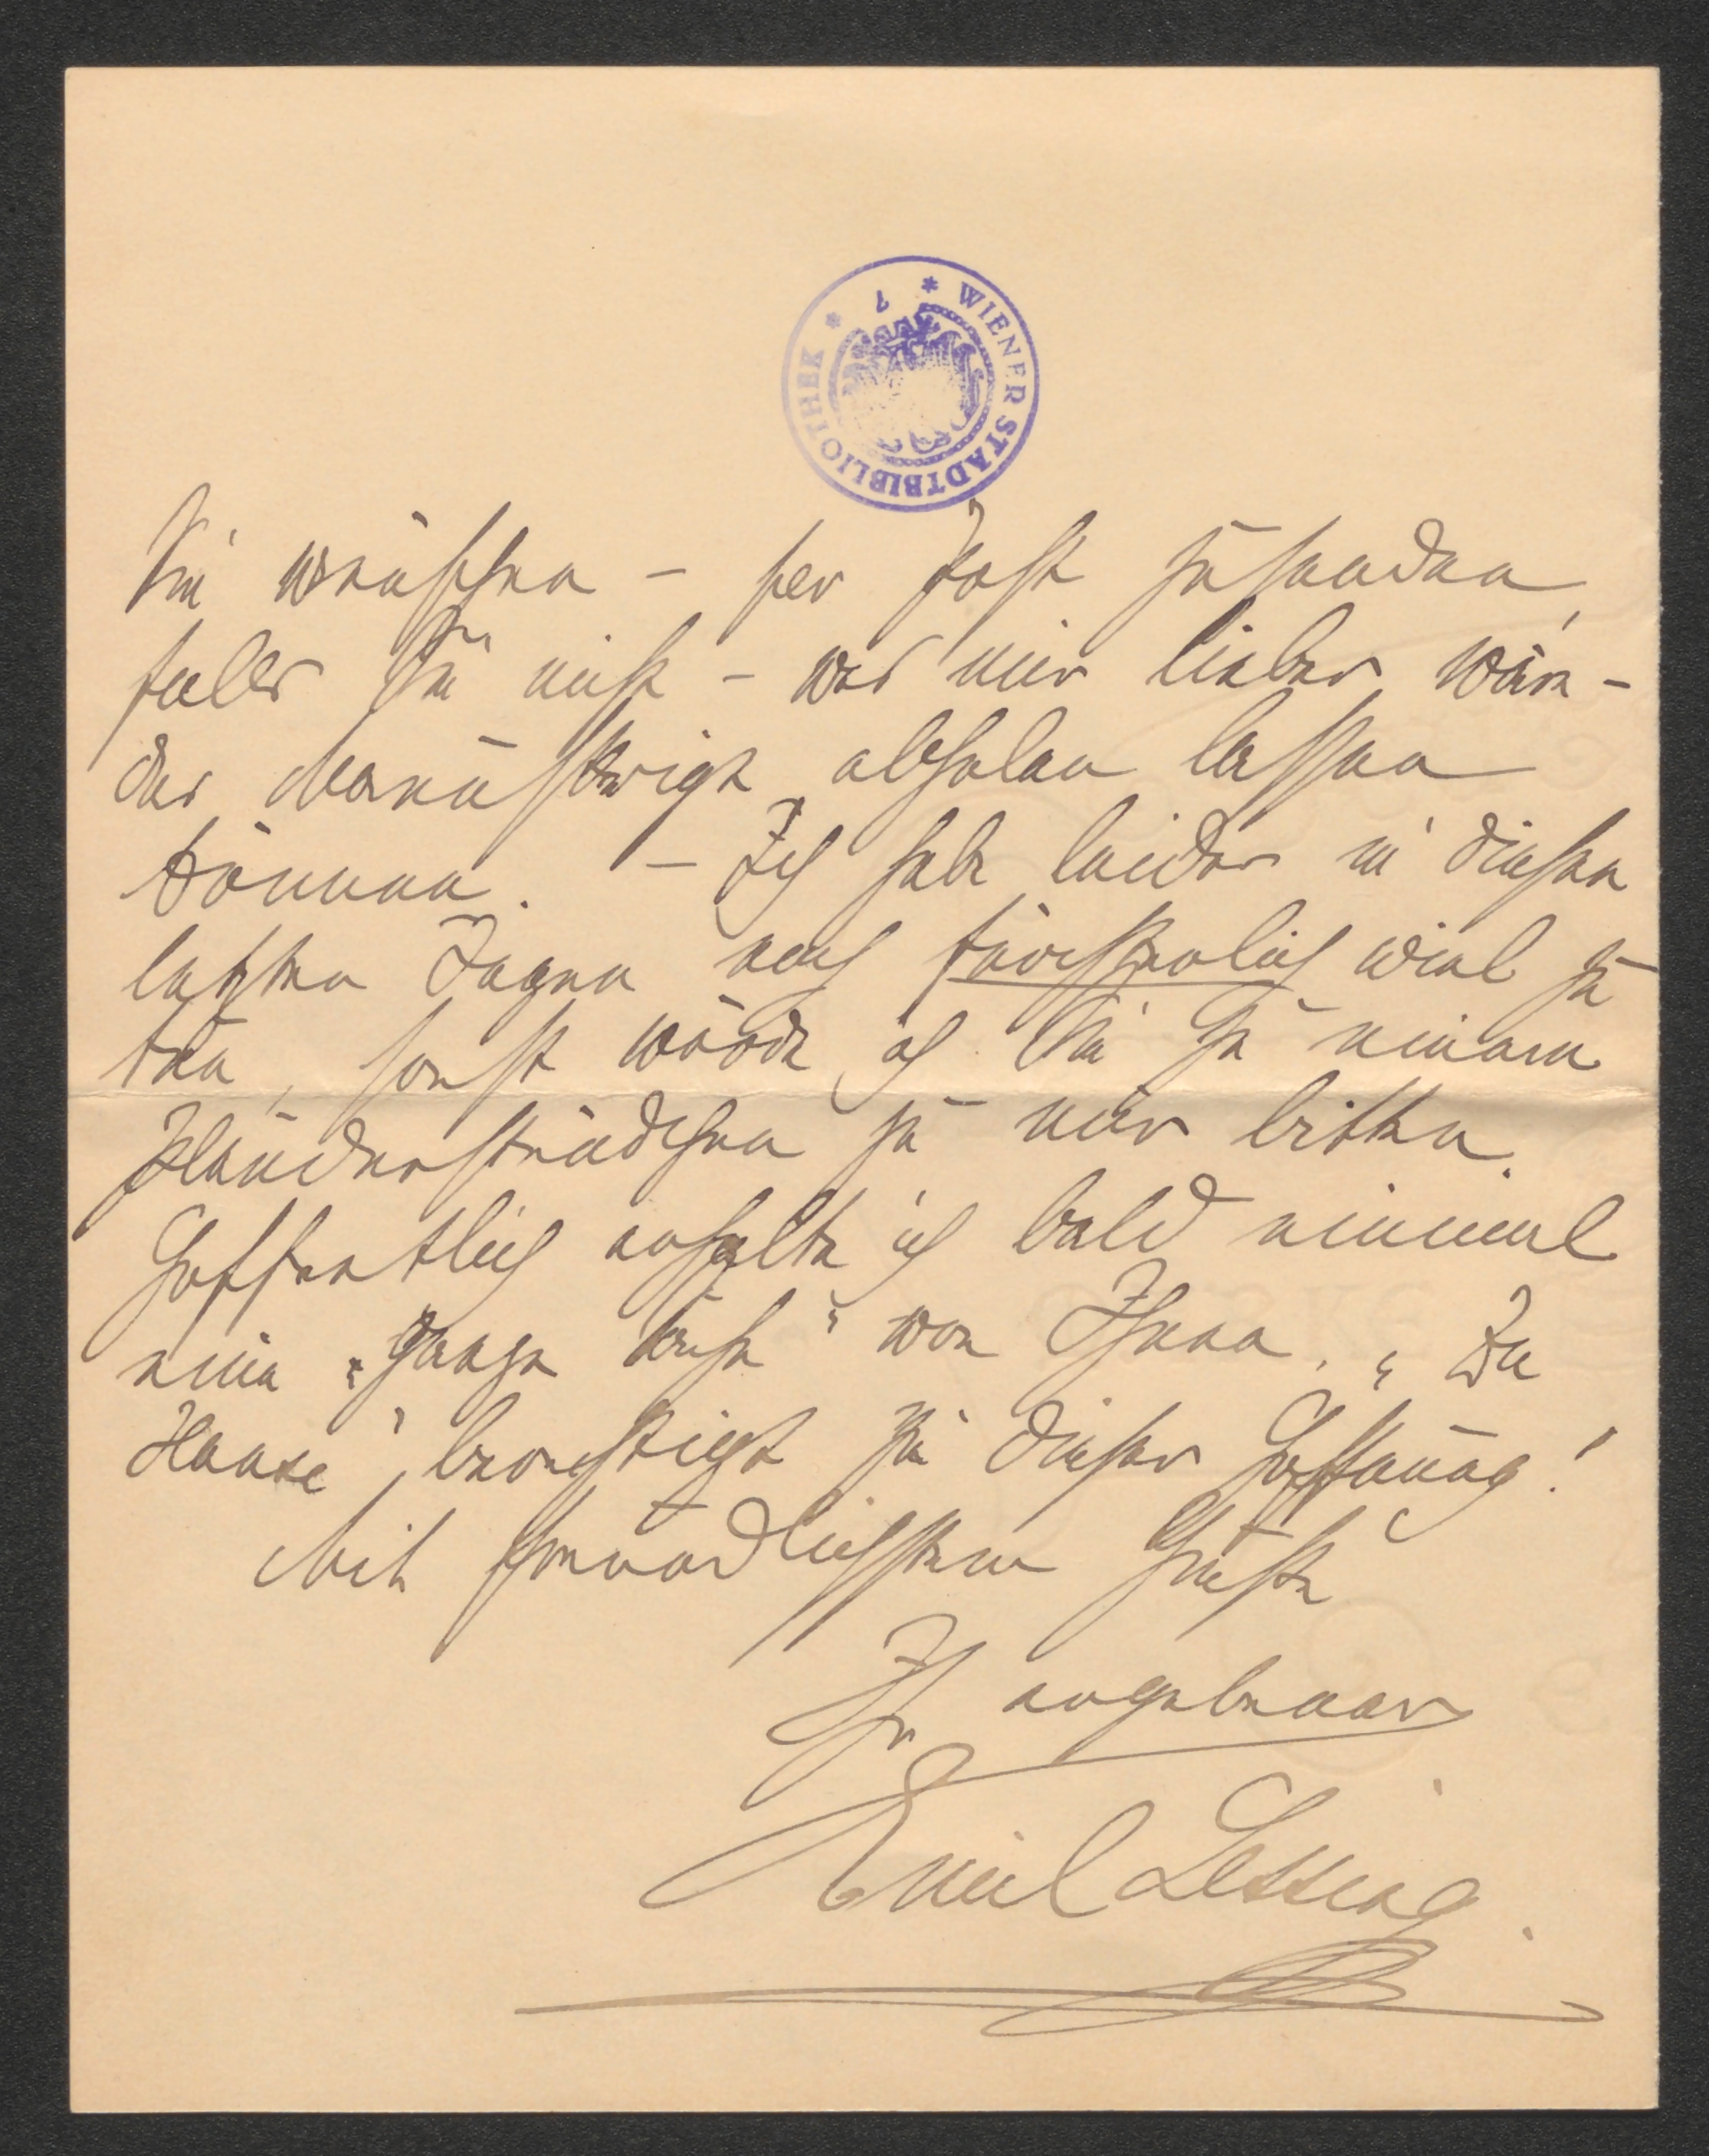 WIENER STADTBIBLIOTHEK
Sie wünschen – per Post zusenden,
falls Sie nicht – was mir lieber wäre –
das Manuskript abholen lassen
können. – Ich habe leider in diesen
letzten Tagen noch fürchterlich viel zu
tun, sonst würde ich Sie zu einem
Plauderstündchen zu mir bitten.
Hoffentlich erhalte ich bald einmal
ein „ganzes Stück“ von Ihnen. „Die
berechtigt zu dieser Hoffnung!
Mit freundlichstem Gruße
Ihr ergebener
Emil Lessing.